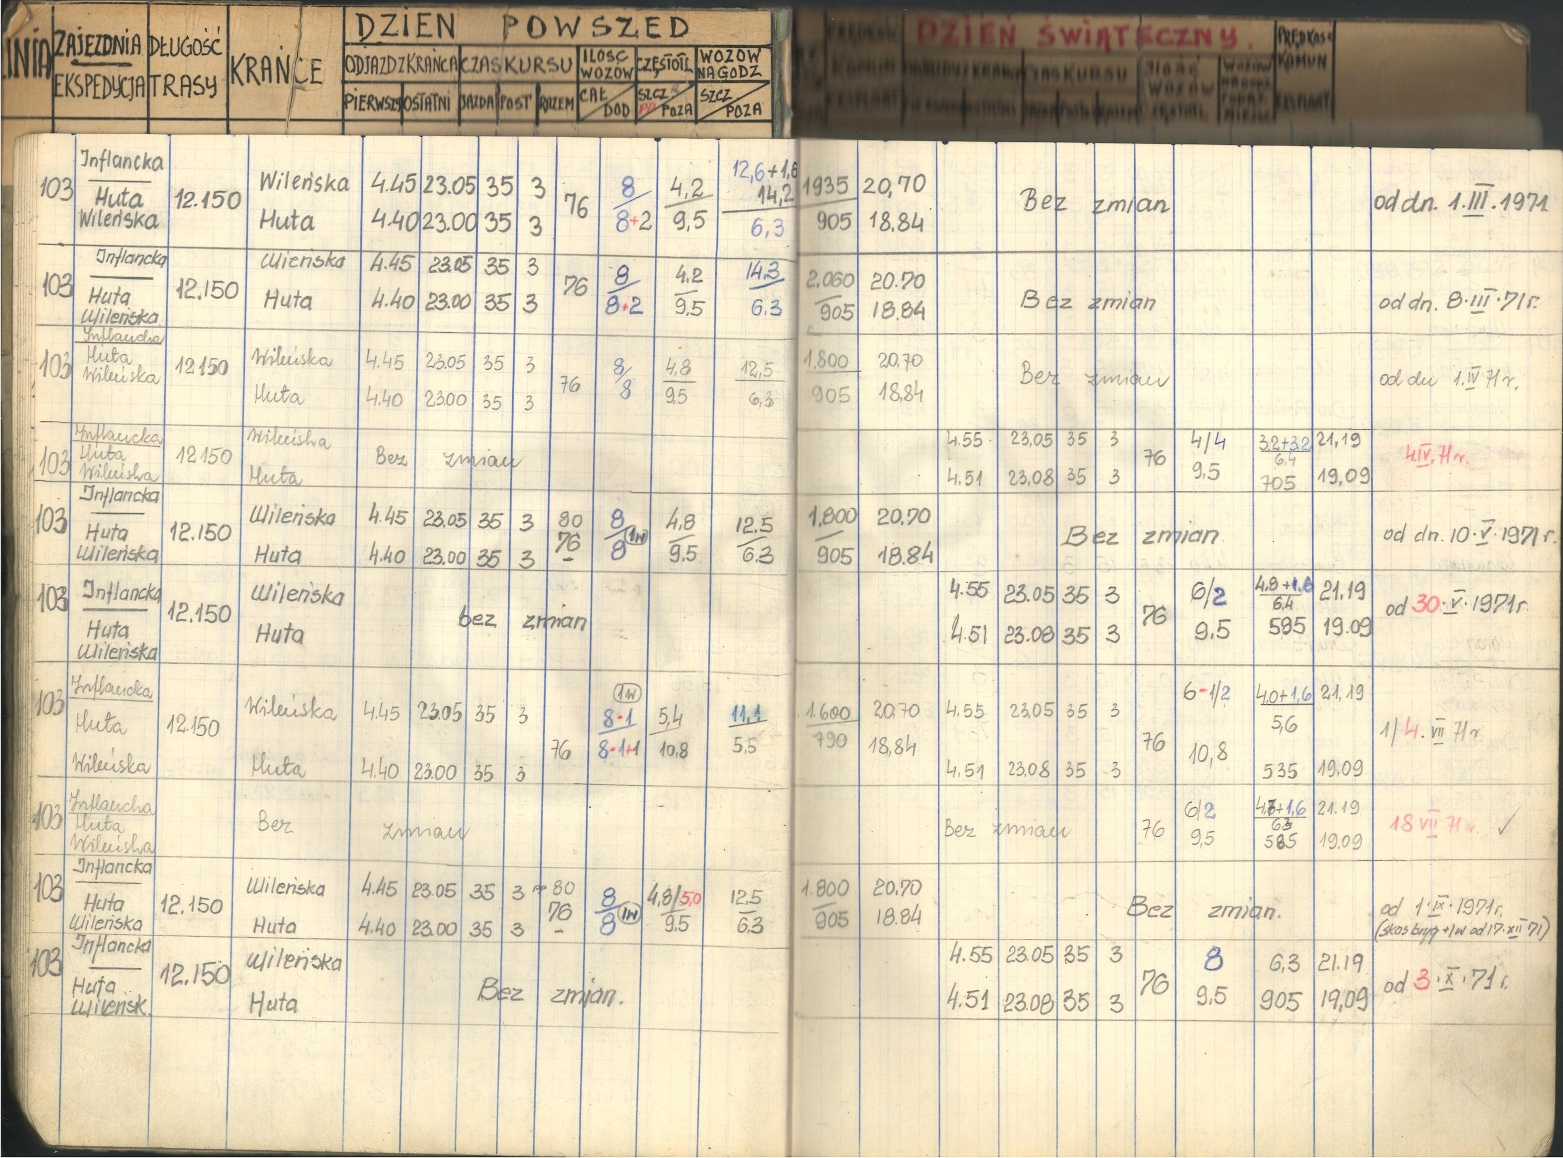 DZIEŃ POWSZED
DZIEŃ ŚWIĄTECZNY.
LINIA ZAJEZDNIA DŁUGOŚĆ KRAŃCE ODJAZD Z KRAŃCA CZAS KURSU ILOŚĆ WOZÓW CZĘSTOTL WOZÓW NA GODZ PRĘDKOŚĆ KOMUN
EKSPEDYCJA TRASY PIERWSZY OSTATNI JAZDA POST RAZEM CAŁ DOD SZCZ POZA SZCZ POZA EKSPLOAT
Inflancka 12,6+1,6
103 Huta 12.150 Wileńska 4.45 23.05 35 3 76 8 4,2 14,2 1935 20,70 Bez zmian od dn. 1.III.1971
Wileńska Huta 4.40 23.00 35 3 8+2 9,5 6,3 905 18.84
Inflancka Wieńska 4.45 23.05 35 3 8 4.2 14.3 2.060 20.70
103 Huta 12.150 Huta 4.40 23.00 35 3 76 8+2 9,5 6.3 905 18.84 Bez zmian od dn. 8.III.71r.
Wileńska
Inflancka
103 Huta 12150 Wileńska 4.45 23.05 35 3 76 8 4,8 12,5 1.800 20,70 Bez zmian od dn 1.IV 71r.
Wileńska Huta 4.40 23.00 35 3 8 9.5 6,3 905 18,84
Inflancka Wileńska 4.55 23.05 35 3 4/4 3.2+3.2 21,19
103 Huta 12150 Bez zmian 76 6.4 4.IV.71r.
Wileńska Huta 4.51 23.08 35 3 9,5 705 19,09
Inflancka
103 Huta 12.150 Wileńska 4.45 23.05 35 3 80 8 1w 4,8 12.5 1.800 20.70 Bez zmian od dn. 10.V.1971r.
Wileńska Huta 4.40 23.00 35 3 76 8 9.5 6.3 905 18.84
–
Inflancka Wileńska 4.55 23.05 35 3 6/2 4.8+1.6 21.19
103 12.150 bez zmian 76 6.4 od 30.V.1971r.
Huta Huta 4.51 23.08 35 3 9.5 585 19.09
Wileńska
Inflancka 1w 6-1/2 4.0+1,6 21,19
103 Huta 12.150 Wileńska 4.45 23.05 35 3 76 8-1 5,4 11,1 1.600 20.70 4.55 23.05 35 3 76 5,6 1/4.VII 71r
Wileńska Huta 4.40 23.00 35 3 8-1+1 10,8 5,5 790 18,84 4.51 23.08 35 3 10,8 535 19.09
Inflancka 6/2 4.7+1,6 21.19
103 Huta Bez zmian Bez zmian 76 63 18 VII 71r. ✓
Wileńska 9,5 585 19.09
Inflancka
103 Huta 12.150 Wileńska 4.45 23.05 35 3 80 8 4,8/5,0 12.5 1.800 20.70 Bez zmian. od 1.IX.1971r.
Wileńska Huta 4.40 23.00 35 3 76 8 1w 9.5 6.3 905 18.84 (skas bryg +1w od 17.XII 71)
–
Inflancka Wileńska 4.55 23.05 35 3 8 6,3 21.19
103 12.150 Bez zmian. 76 od 3.X.71r.
Huta Huta 4.51 23.08 35 3 9.5 905 19,09
Wileńsk.